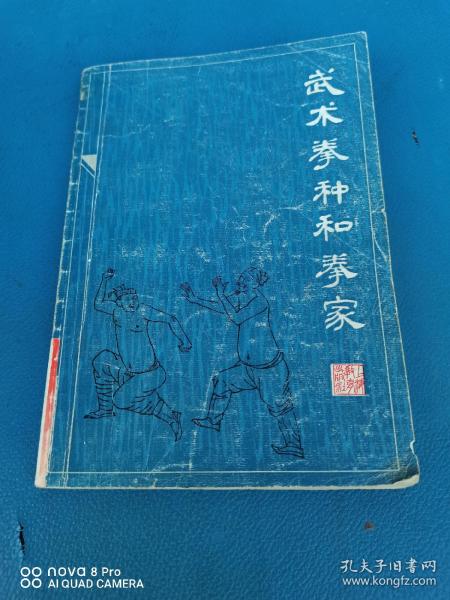 武术拳种和拳家
上海
教育
出版社
nova 8 Pro
AI QUAD CAMERA
孔夫子旧书网
www.kongfz.com